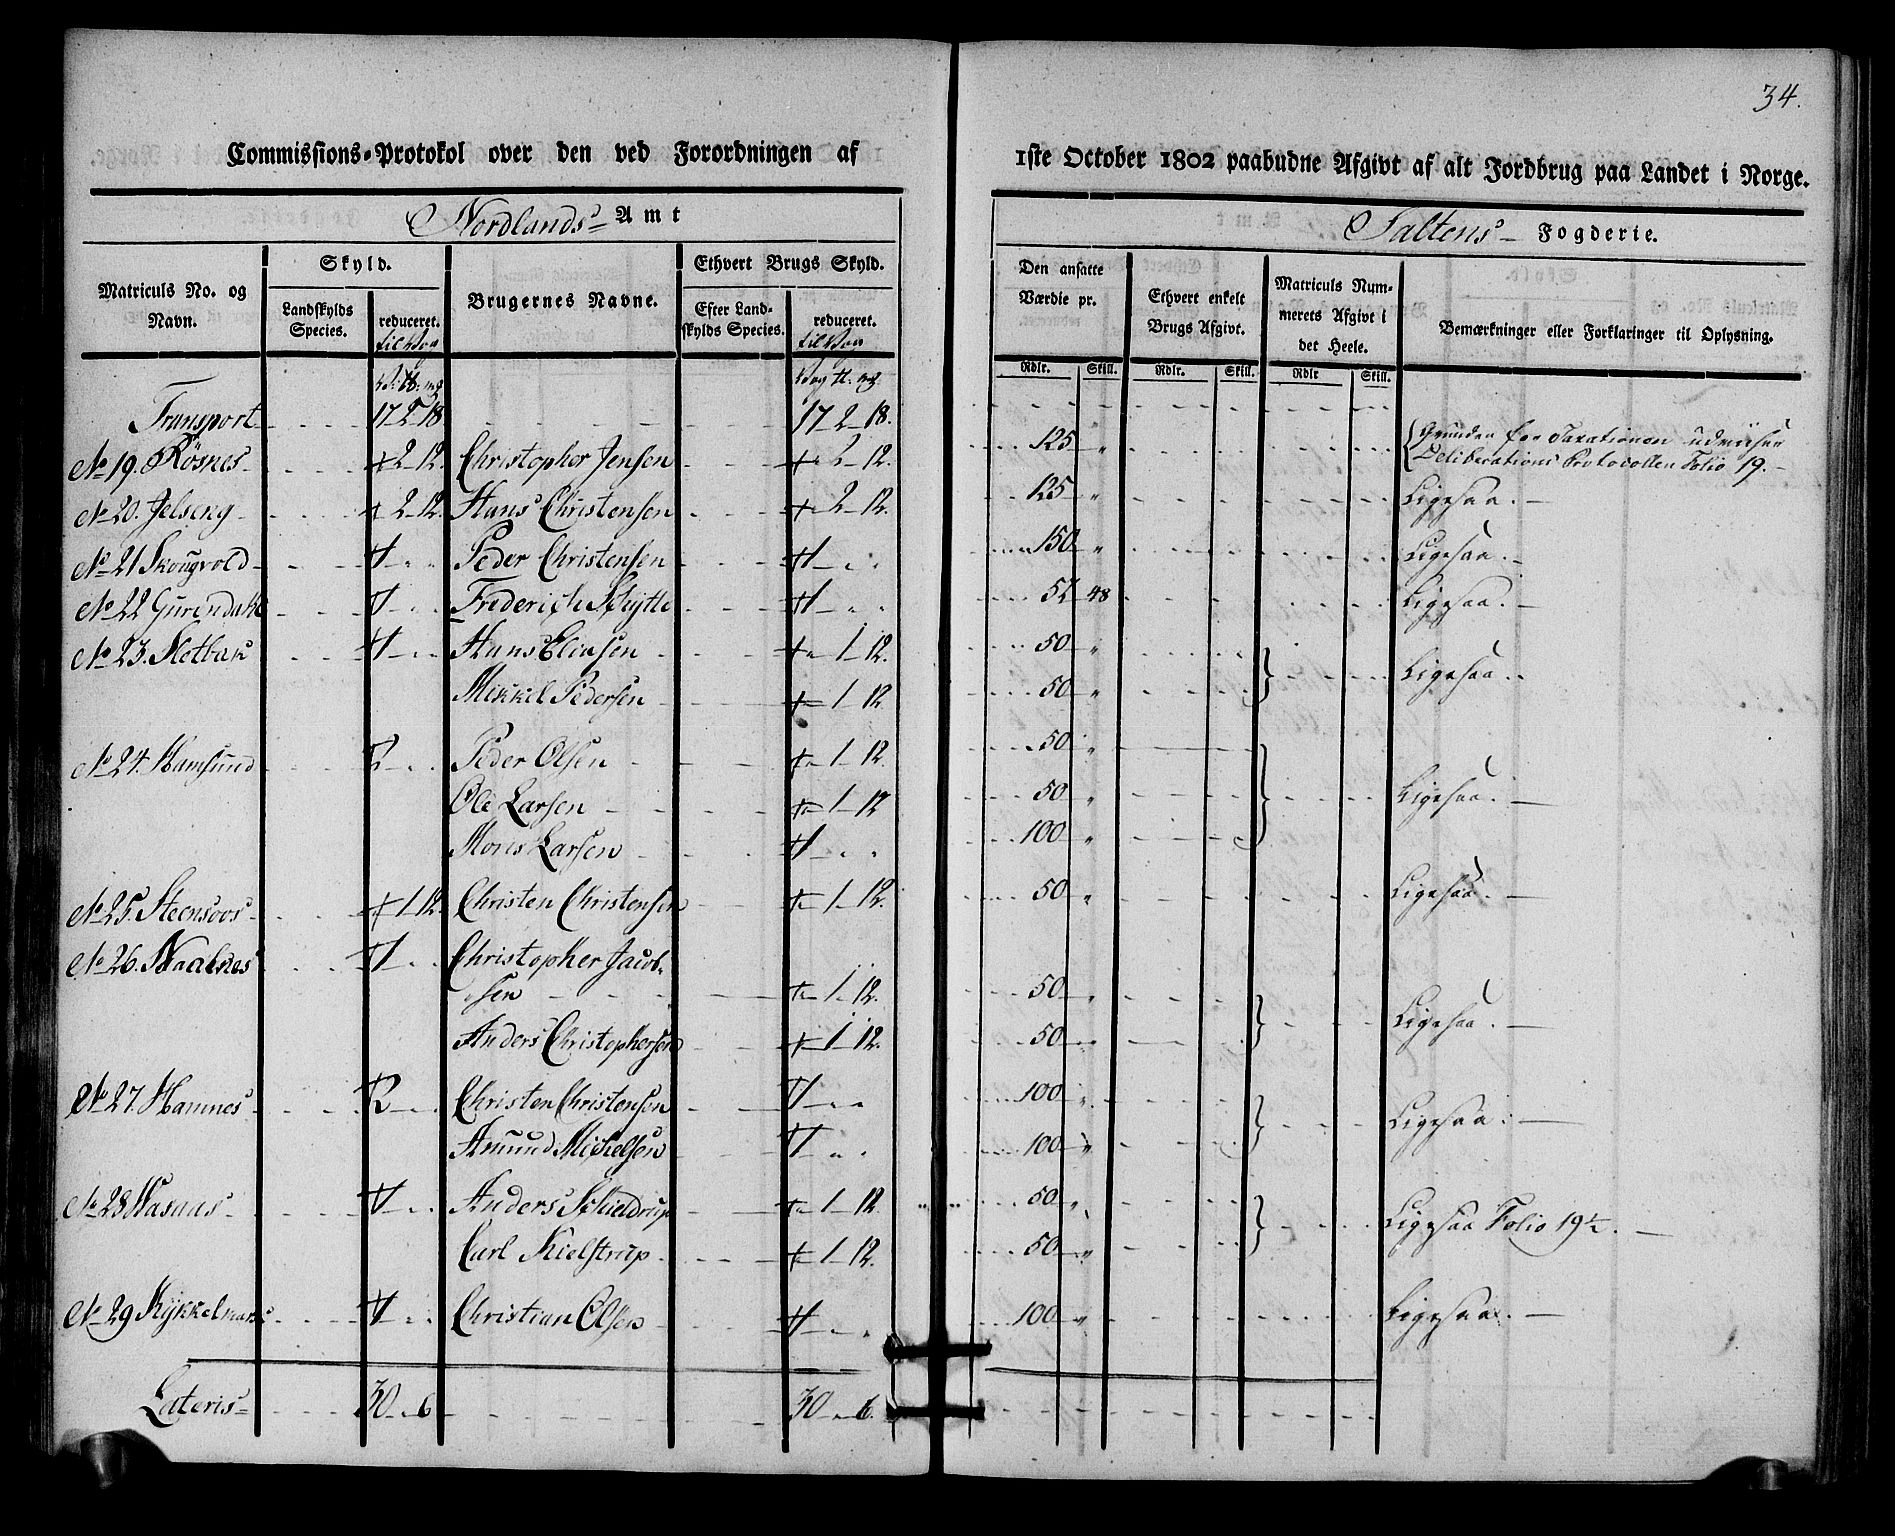 34.
Commissions-Protokol over den ved Forordningen af 1ste October 1802 paabudne Afgivt af alt Jordbrug paa Landet i Norge.
Nordlands Amt
Saltens Fogderie.
Matriculs No. og Navn.
Skyld.
Landskylds Species.
reduceret. til Vaa
Brugernes Navne.
Ethvert Brugs Skyld.
Efter Landskylds Species.
reduceret. til Vaa
Den ansatte Værdie pr.
Ethvert enkelt Brugs Afgivt.
Matriculs Nummerets Afgivt i det Heele.
Bemærkninger eller Forklaringer til Oplysning.
Rdlr. Skill. Rdlr. Skill. Rdlr Skill.
Transport 17 2 18 17 2 18.
No 19. Rösnes 2 12 Christopher Jensen 2 12. 125 " Grunden for Taxationen udviiser Deliberations Protocollen Folio 19.
No 20. Jelseng 2 12. Hans Christensen 2 12. 125 " Ligesaa.
No 21 Skougvold 1 Peder Christensen 1 150 " Ligesaa.
No 22 1 Frederich Schytte 1 52 48 Ligesaa.
No 23. Sletbak 1 Hans Eliasen 1 12. 50 " Ligesaa.
Mikkel Pedersen 1 12 50 "
No 24. Hamsund 2 Peder Olsen 1 12. 50 " Ligesaa.
Ole Larsen 1 12 50 "
Mons Larsen 1 100 "
No 25. Steensoos 1 12. Christen Christensen 1 12. 50 " Ligesaa.
No 26. Naalnes 1 Christopher Jacob-
sen 1 12. 50 " Ligesaa.
Anders Christophersen 1 12. 50 "
No 27. Hamnes 2 Christen Christensen 1 100 " Ligesaa.
Amund Michelsen 1 100 "
No 28 Hasaas 1 Anders Schieldrup 1 12. 50 " Ligesaa Folio 19½.
Carl Kielstrup 1 12. 50 "
No 29 1 Christian Olsen 1 100 " Ligesaa.
Lateris 30 " 6 30 " 6.